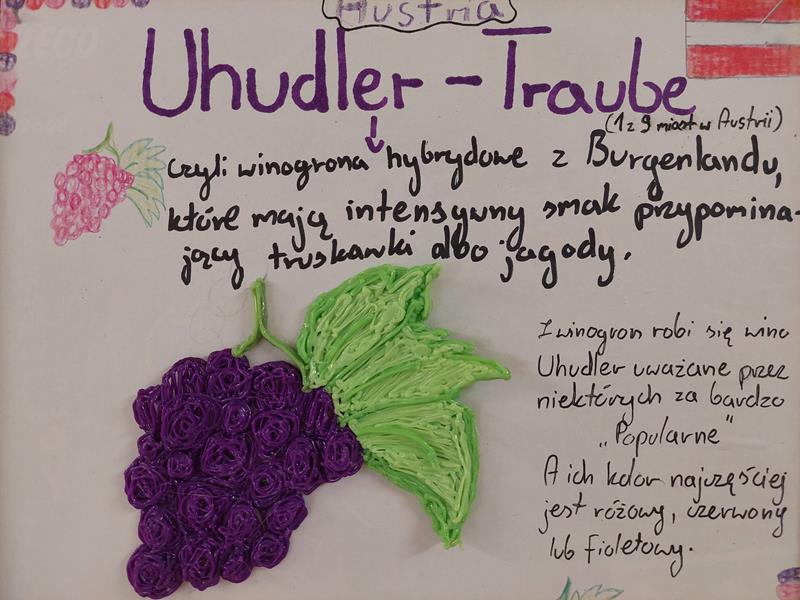 Austria
Uhudler - Traube
(1 z 9 miast w Austrii)
czyli winogrona hybrydowe z Burgenlandu,
które mają intensywny smak przypomina-
jący truskawki albo jagody.
Z winogron robi się wino
Uhudler uważane przez
niektórych za bardzo
„Popularne"
A ich kolor najczęściej
jest różowy, czerwony
lub fioletowy.